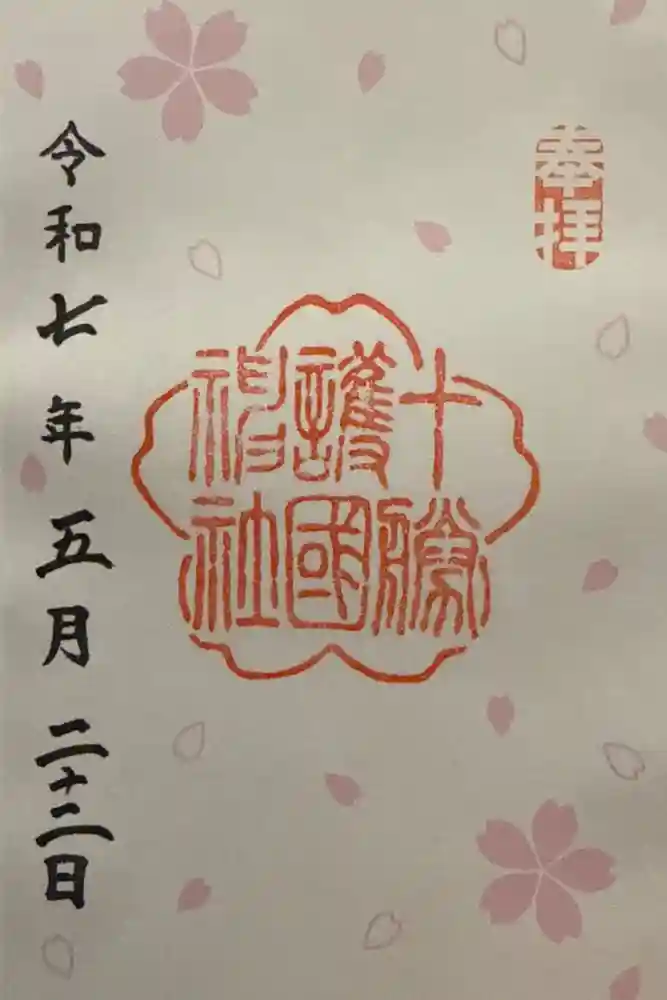 奉拝
十勝
護國
神社
令和七年五月二十二日